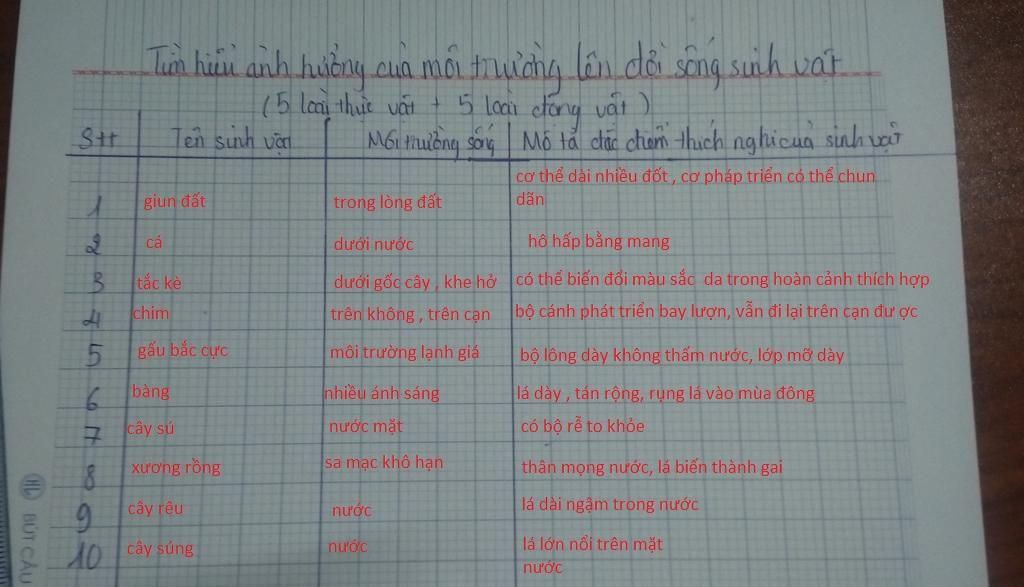 Tìm hiểu ảnh hưởng của môi trường lên đời sống sinh vật
(5 loài thực vật + 5 loài động vật)
Stt Tên sinh vật Môi trường sống Mô tả đặc điểm thích nghi của sinh vật
1 giun đất trong lòng đất cơ thể dài nhiều đốt , cơ pháp triển có thể chun
dãn
2 cá dưới nước hô hấp bằng mang
3 tắc kè dưới gốc cây , khe hở có thể biến đổi màu sắc da trong hoàn cảnh thích hợp
4 chim trên không , trên cạn bộ cánh phát triển bay lượn, vẫn đi lại trên cạn đư ợc
5 gấu bắc cực môi trường lạnh giá bộ lông dày không thấm nước, lớp mỡ dày
6 bàng nhiều ánh sáng lá dày , tán rộng, rụng lá vào mùa đông
7 cây sú nước mặt có bộ rễ to khỏe
8 xương rồng sa mạc khô hạn thân mọng nước, lá biến thành gai
9 cây rêu nước lá dài ngậm trong nước
10 cây súng nước lá lớn nổi trên mặt
nước
BÚT CÂU